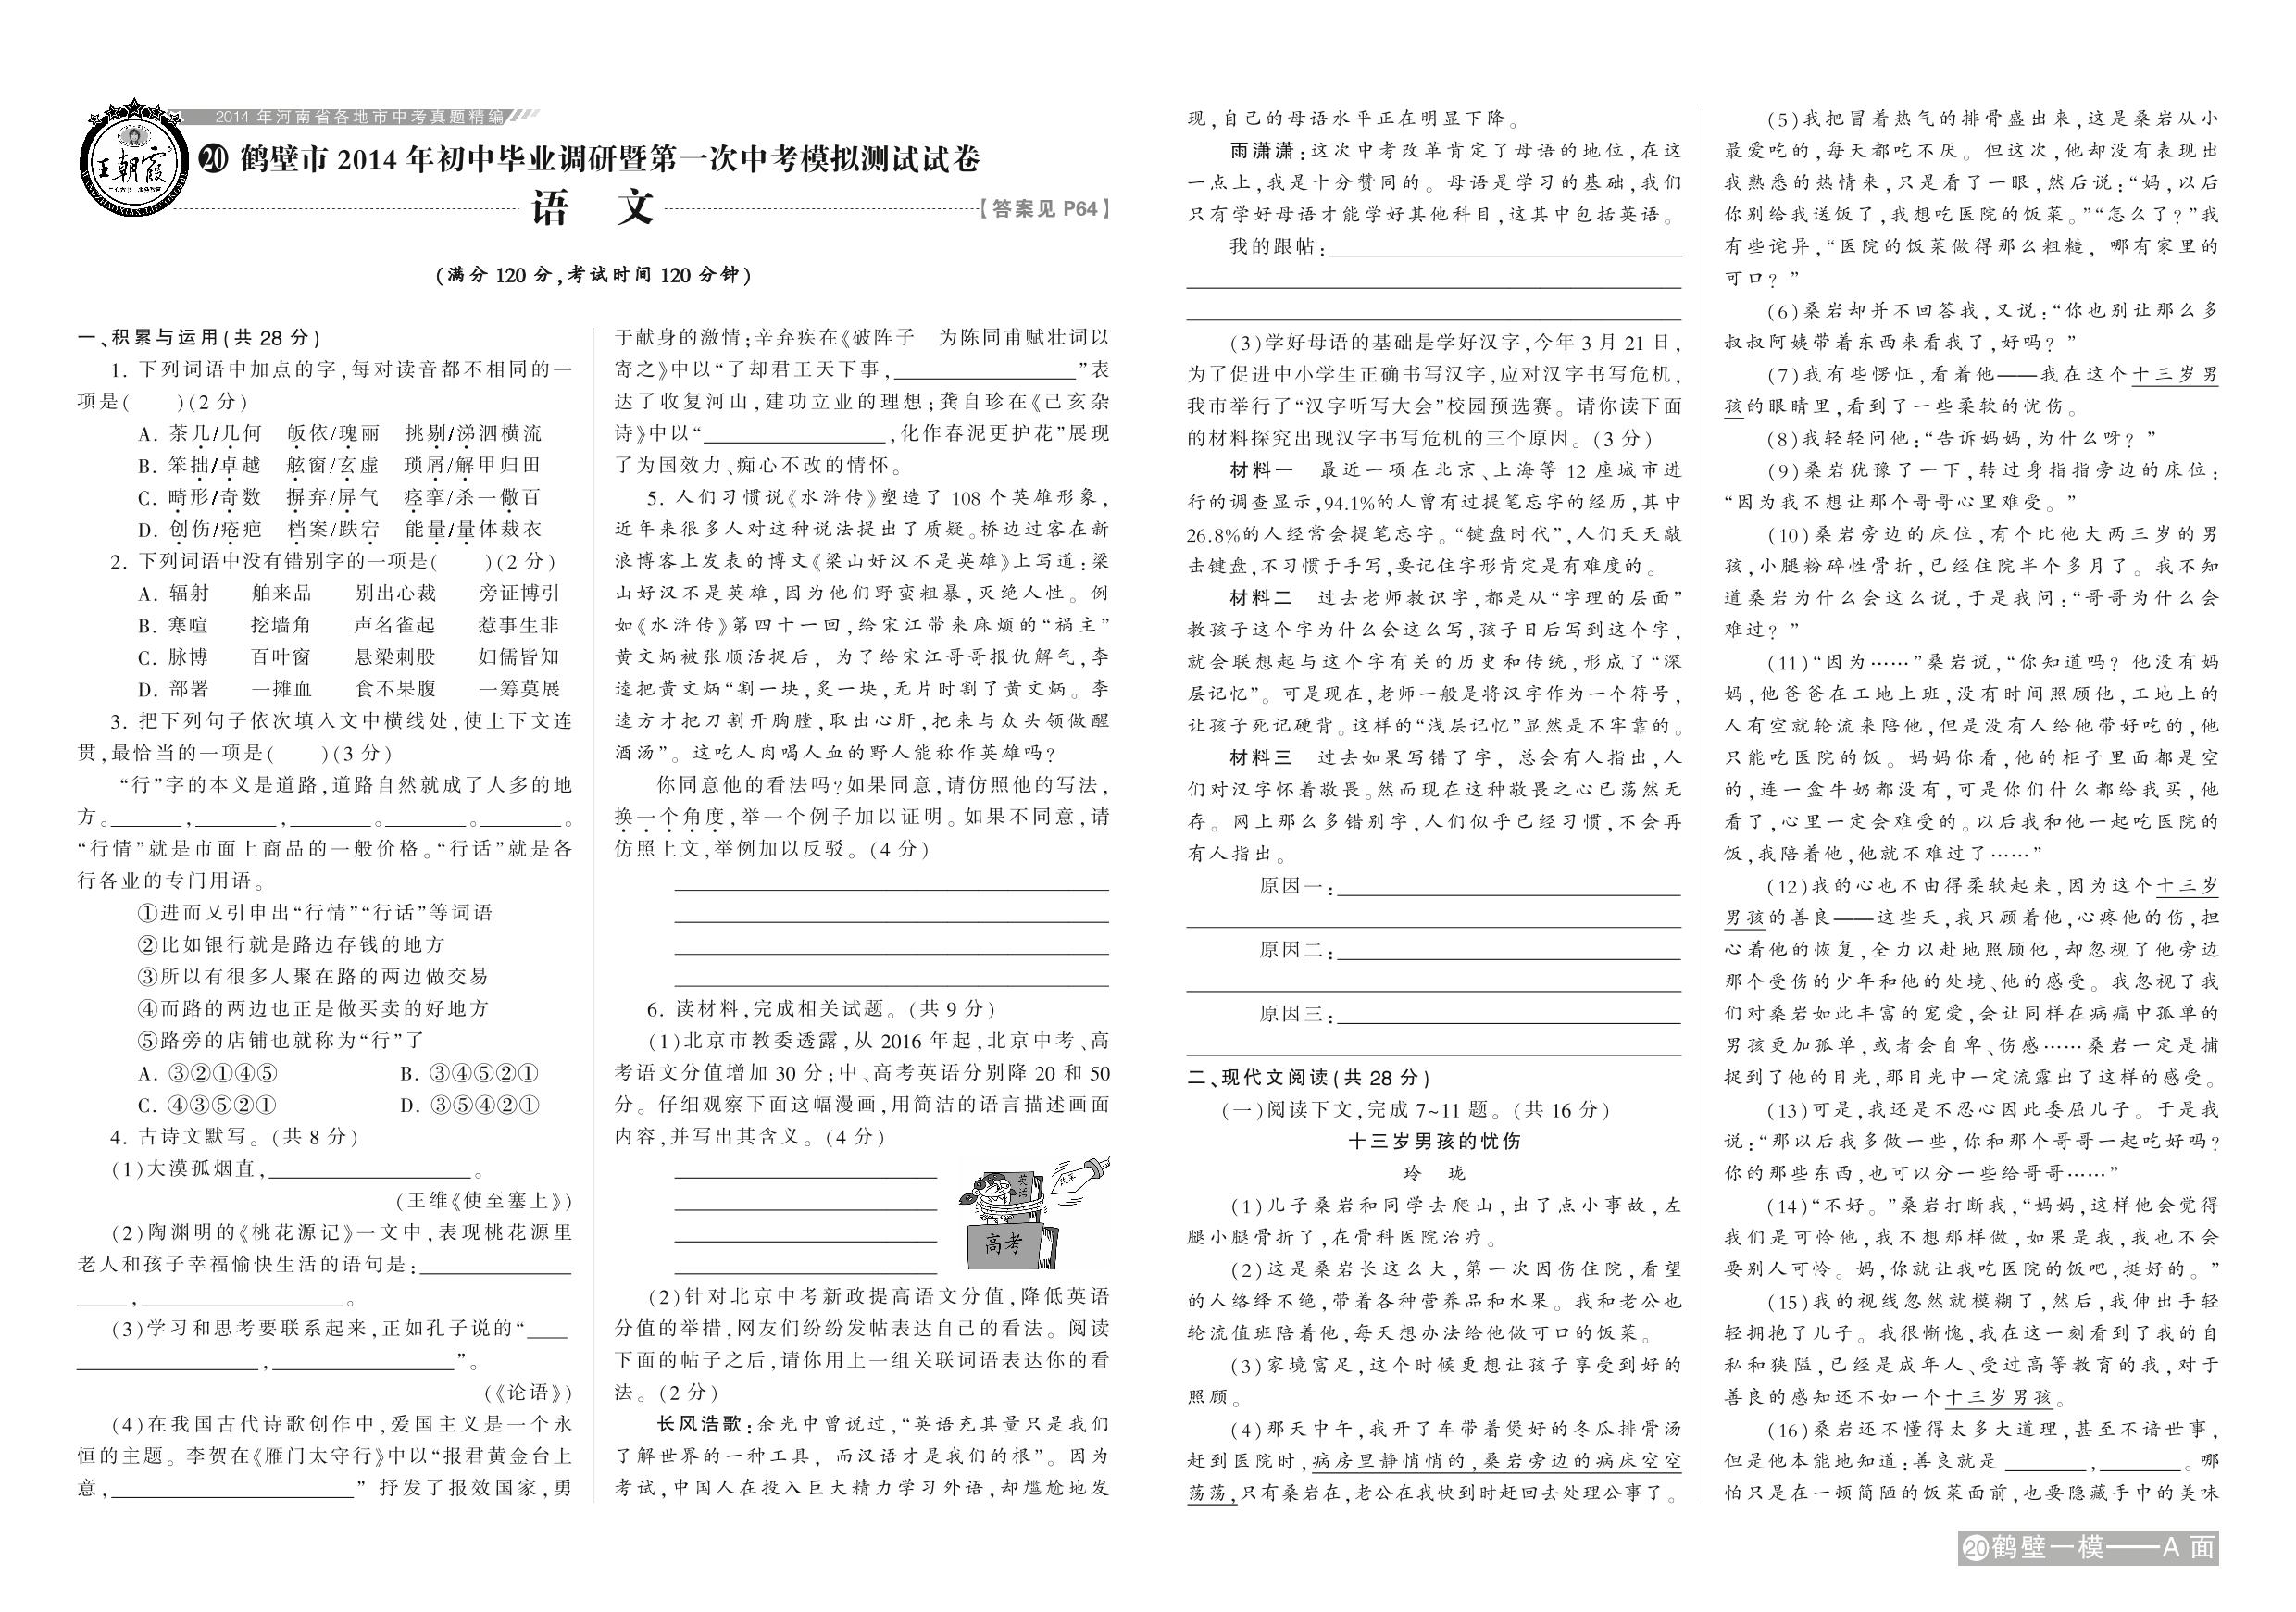 2014 年河南省各地市中考真题精编
王朝霞
⑳ 鹤壁市 2014 年初中毕业调研暨第一次中考模拟测试试卷
语 文
【答案见 P64】
(满分 120 分,考试时间 120 分钟)
一、积累与运用(共 28 分)
1. 下列词语中加点的字,每对读音都不相同的一
项是(  )(2 分)
A. 茶几/几何 皈依/瑰丽 挑剔/涕泗横流
B. 笨拙/卓越 舷窗/玄虚 琐屑/解甲归田
C. 畸形/奇数 摒弃/屏气 痉挛/杀一儆百
D. 创伤/疮疤 档案/跌宕 能量/量体裁衣
2. 下列词语中没有错别字的一项是(  )(2 分)
A. 辐射 舶来品 别出心裁 旁证博引
B. 寒喧 挖墙角 声名雀起 惹事生非
C. 脉博 百叶窗 悬梁刺股 妇儒皆知
D. 部署 一摊血 食不果腹 一筹莫展
3. 把下列句子依次填入文中横线处,使上下文连
贯,最恰当的一项是(  )(3 分)
“行”字的本义是道路,道路自然就成了人多的地
方。______,______,______。______。______。
“行情”就是市面上商品的一般价格。“行话”就是各
行各业的专门用语。
①进而又引申出“行情”“行话”等词语
②比如银行就是路边存钱的地方
③所以有很多人聚在路的两边做交易
④而路的两边也正是做买卖的好地方
⑤路旁的店铺也就称为“行”了
A. ③②①④⑤ B. ③④⑤②①
C. ④③⑤②① D. ③⑤④②①
4. 古诗文默写。(共 8 分)
(1)大漠孤烟直,______。
(王维《使至塞上》)
(2)陶渊明的《桃花源记》一文中,表现桃花源里
老人和孩子幸福愉快生活的语句是:______
____,______。
(3)学习和思考要联系起来,正如孔子说的“____
______,______”。
(《论语》)
(4)在我国古代诗歌创作中,爱国主义是一个永
恒的主题。李贺在《雁门太守行》中以“报君黄金台上
意,______”抒发了报效国家,勇
于献身的激情;辛弃疾在《破阵子 为陈同甫赋壮词以
寄之》中以“了却君王天下事,______”表
达了收复河山,建功立业的理想;龚自珍在《己亥杂
诗》中以“______,化作春泥更护花”展现
了为国效力、痴心不改的情怀。
5. 人们习惯说《水浒传》塑造了 108 个英雄形象,
近年来很多人对这种说法提出了质疑。桥边过客在新
浪博客上发表的博文《梁山好汉不是英雄》上写道:梁
山好汉不是英雄,因为他们野蛮粗暴,灭绝人性。例
如《水浒传》第四十一回,给宋江带来麻烦的“祸主”
黄文炳被张顺活捉后,为了给宋江哥哥报仇解气,李
逵把黄文炳“割一块,炙一块,无片时割了黄文炳。李
逵方才把刀割开胸膛,取出心肝,把来与众头领做醒
酒汤”。这吃人肉喝人血的野人能称作英雄吗?
你同意他的看法吗?如果同意,请仿照他的写法,
换一个角度,举一个例子加以证明。如果不同意,请
仿照上文,举例加以反驳。(4 分)
6. 读材料,完成相关试题。(共 9 分)
(1)北京市教委透露,从 2016 年起,北京中考、高
考语文分值增加 30 分;中、高考英语分别降 20 和 50
分。仔细观察下面这幅漫画,用简洁的语言描述画面
内容,并写出其含义。(4 分)
英语
高考
(2)针对北京中考新政提高语文分值,降低英语
分值的举措,网友们纷纷发帖表达自己的看法。阅读
下面的帖子之后,请你用上一组关联词语表达你的看
法。(2 分)
长风浩歌:余光中曾说过,“英语充其量只是我们
了解世界的一种工具,而汉语才是我们的根”。因为
考试,中国人在投入巨大精力学习外语,却尴尬地发
现,自己的母语水平正在明显下降。
雨潇潇:这次中考改革肯定了母语的地位,在这
一点上,我是十分赞同的。母语是学习的基础,我们
只有学好母语才能学好其他科目,这其中包括英语。
我的跟帖:______
(3)学好母语的基础是学好汉字,今年 3 月 21 日,
为了促进中小学生正确书写汉字,应对汉字书写危机,
我市举行了“汉字听写大会”校园预选赛。请你读下面
的材料探究出现汉字书写危机的三个原因。(3 分)
材料一 最近一项在北京、上海等 12 座城市进
行的调查显示,94.1%的人曾有过提笔忘字的经历,其中
26.8%的人经常会提笔忘字。“键盘时代”,人们天天敲
击键盘,不习惯于手写,要记住字形肯定是有难度的。
材料二 过去老师教识字,都是从“字理的层面”
教孩子这个字为什么会这么写,孩子日后写到这个字,
就会联想起与这个字有关的历史和传统,形成了“深
层记忆”。可是现在,老师一般是将汉字作为一个符号,
让孩子死记硬背。这样的“浅层记忆”显然是不牢靠的。
材料三 过去如果写错了字,总会有人指出,人
们对汉字怀着敬畏。然而现在这种敬畏之心已荡然无
存。网上那么多错别字,人们似乎已经习惯,不会再
有人指出。
原因一:______
原因二:______
原因三:______
二、现代文阅读(共 28 分)
(一)阅读下文,完成 7~11 题。(共 16 分)
十三岁男孩的忧伤
玲 珑
(1)儿子桑岩和同学去爬山,出了点小事故,左
腿小腿骨折了,在骨科医院治疗。
(2)这是桑岩长这么大,第一次因伤住院,看望
的人络绎不绝,带着各种营养品和水果。我和老公也
轮流值班陪着他,每天想办法给他做可口的饭菜。
(3)家境富足,这个时候更想让孩子享受到好的
照顾。
(4)那天中午,我开了车带着煲好的冬瓜排骨汤
赶到医院时,病房里静悄悄的,桑岩旁边的病床空空
荡荡,只有桑岩在,老公在我快到时赶回去处理公事了。
(5)我把冒着热气的排骨盛出来,这是桑岩从小
最爱吃的,每天都吃不厌。但这次,他却没有表现出
我熟悉的热情来,只是看了一眼,然后说:“妈,以后
你别给我送饭了,我想吃医院的饭菜。”“怎么了?”我
有些诧异,“医院的饭菜做得那么粗糙,哪有家里的
可口?”
(6)桑岩却并不回答我,又说:“你也别让那么多
叔叔阿姨带着东西来看我了,好吗?”
(7)我有些愣怔,看着他——我在这个十三岁男
孩的眼睛里,看到了一些柔软的忧伤。
(8)我轻轻问他:“告诉妈妈,为什么呀?”
(9)桑岩犹豫了一下,转过身指指旁边的床位:
“因为我不想让那个哥哥心里难受。”
(10)桑岩旁边的床位,有个比他大两三岁的男
孩,小腿粉碎性骨折,已经住院半个多月了。我不知
道桑岩为什么会这么说,于是我问:“哥哥为什么会
难过?”
(11)“因为……”桑岩说,“你知道吗?他没有妈
妈,他爸爸在工地上班,没有时间照顾他,工地上的
人有空就轮流来陪他,但是没有人给他带好吃的,他
只能吃医院的饭。妈妈你看,他的柜子里面都是空
的,连一盒牛奶都没有,可是你们什么都给我买,他
看了,心里一定会难受的。以后我和他一起吃医院的
饭,我陪着他,他就不难过了……”
(12)我的心也不由得柔软起来,因为这个十三岁
男孩的善良——这些天,我只顾着他,心疼他的伤,担
心着他的恢复,全力以赴地照顾他,却忽视了他旁边
那个受伤的少年和他的处境、他的感受。我忽视了我
们对桑岩如此丰富的宠爱,会让同样在病痛中孤单的
男孩更加孤单,或者会自卑、伤感……桑岩一定是捕
捉到了他的目光,那目光中一定流露出了这样的感受。
(13)可是,我还是不忍心因此委屈儿子。于是我
说:“那以后我多做一些,你和那个哥哥一起吃好吗?
你的那些东西,也可以分一些给哥哥……”
(14)“不好。”桑岩打断我,“妈妈,这样他会觉得
我们是可怜他,我不想那样做,如果是我,我也不会
要别人可怜。妈,你就让我吃医院的饭吧,挺好的。”
(15)我的视线忽然就模糊了,然后,我伸出手轻
轻拥抱了儿子。我很惭愧,我在这一刻看到了我的自
私和狭隘,已经是成年人、受过高等教育的我,对于
善良的感知还不如一个十三岁男孩。
(16)桑岩还不懂得太多大道理,甚至不谙世事,
但是他本能地知道:善良就是______,______。哪
怕只是在一顿简陋的饭菜面前,也要隐藏手中的美味
⑳鹤壁一模——A 面